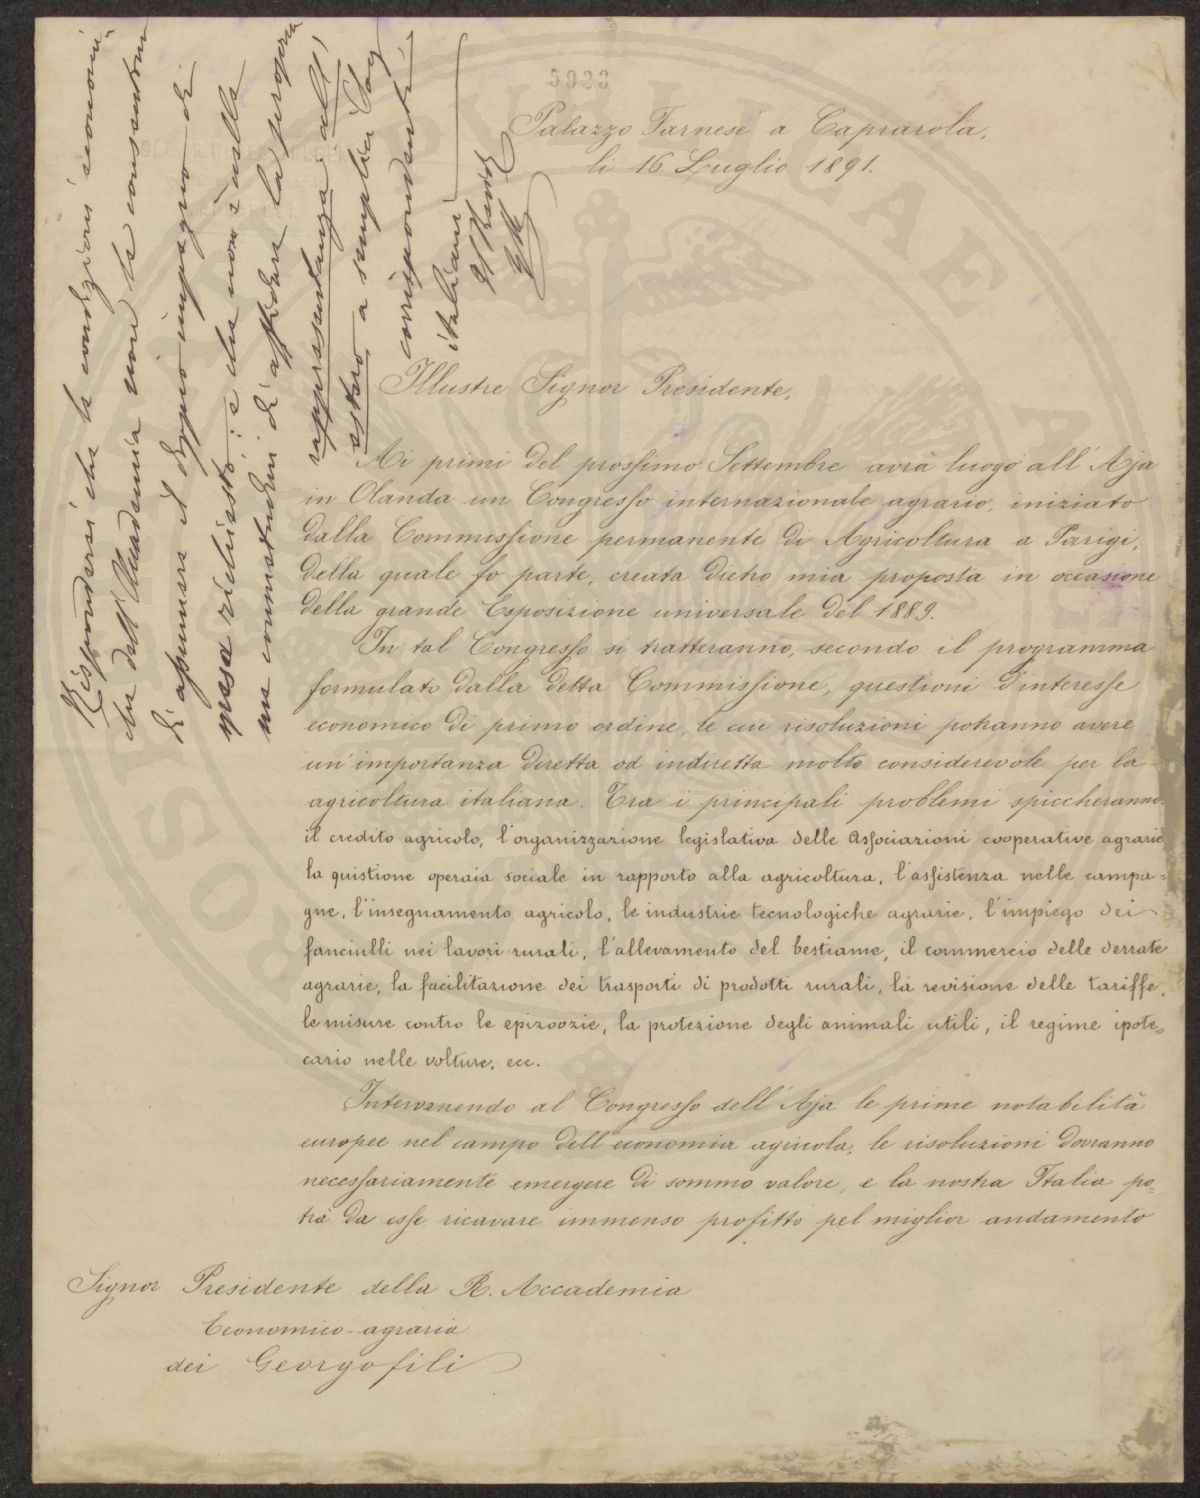 5923
Palazzo Farnese a Caprarola,
li 16 Luglio 1891.
Illustre Signor Presidente,
Ai primi del prossimo Settembre avrà luogo all'Aja
in Olanda un Congresso internazionale agrario, iniziato
dalla Commissione permanente di Agricoltura a Parigi,
della quale fo parte, creata dietro mia proposta in occasione
della grande Esposizione universale del 1889.
In tal Congresso si tratteranno, secondo il programma
formulato dalla detta Commissione, questioni d'interesse
economico di primo ordine, le cui risoluzioni potranno avere
un'importanza diretta od indiretta molto considerevole per la
agricoltura italiana. Tra i principali problemi spiccheranno:
il credito agricolo, l'organizzazione legislativa delle Associazioni cooperative agrarie
la quistione operaia sociale in rapporto alla agricoltura, l'assistenza nelle campa=
gne, l'insegnamento agricolo, le industrie tecnologiche agrarie, l'impiego dei
fanciulli nei lavori rurali, l'allevamento del bestiame, il commercio delle derrate
agrarie, la facilitazione dei trasporti di prodotti rurali, la revisione delle tariffe,
le misure contro le epizoozie, la protezione degli animali utili, il regime ipote=
cario nelle volture, ecc.
Intervenendo al Congresso dell'Aja le prime notabilità
europee nel campo dell'economia agricola, le risoluzioni dovranno
necessariamente emergere di sommo valore, e la nostra Italia po=
trà da esse ricavare immenso profitto pel miglior andamento
Signor Presidente della R. Accademia
Economico-agraria
dei Georgofili
Rispondersi che le condizioni economi-
che dell'Accademia non le consentono
di assumere il doppio impegno di
spesa richiesto: e che non è nella
sue consuetudini di affidare la propria
rappresentanza all'
estero a semplici Soci
corrispondenti
italiani